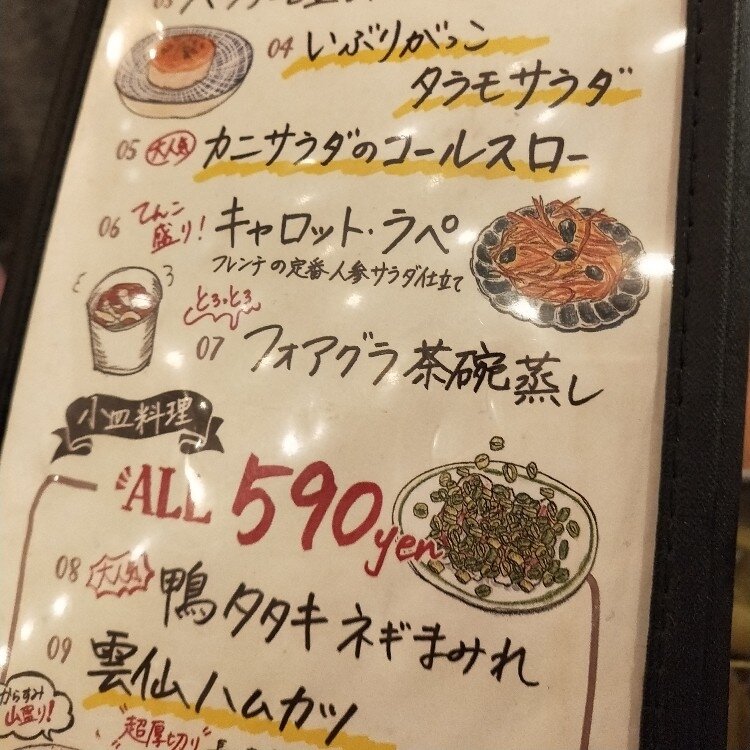 04 いぶりがっこ
タラモサラダ
05 大人気 カニサラダのコールスロー
06 てんこ盛り! キャロット・ラペ
フレンチの定番人参サラダ仕立て
とろ・とろ
07 フォアグラ茶碗蒸し
小皿料理
ALL 590yen
08 大人気 鴨タタキネギまみれ
09 雲仙ハムカツ
からすみ
山盛り!
超厚切り